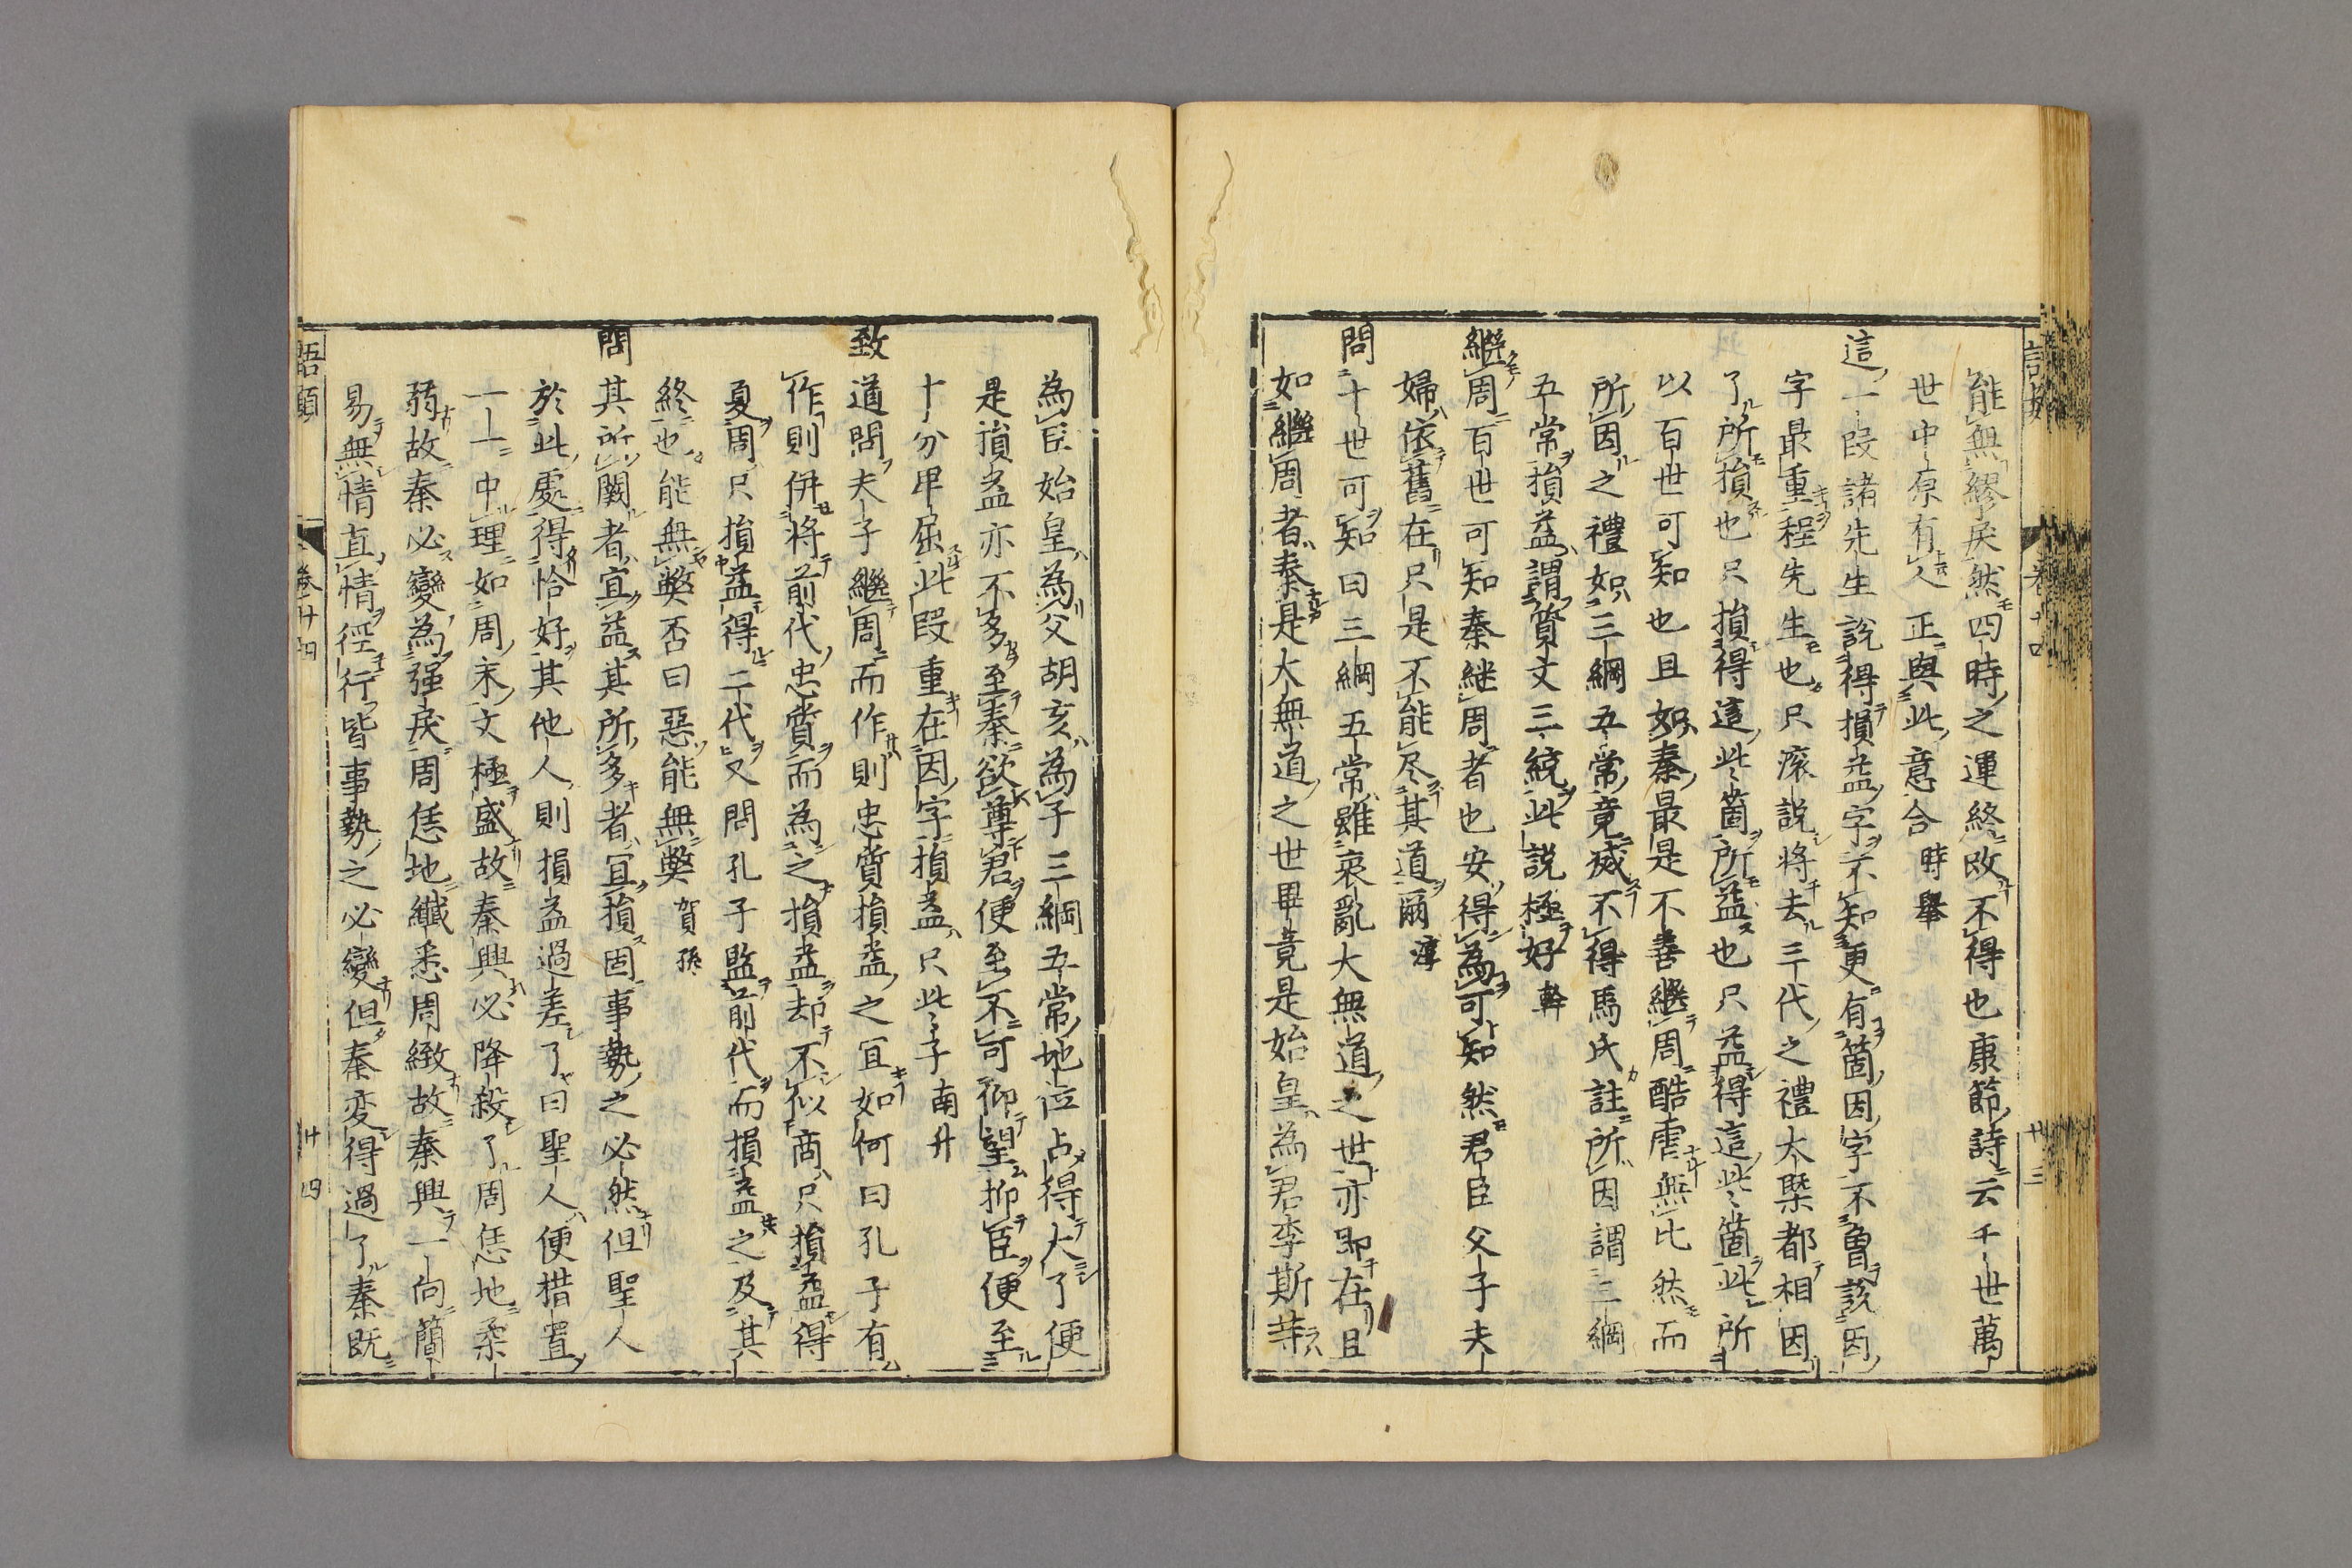 能無繆戾然四時之運終改不得也康節詩云千世萬
世中原有人正與此意合 時舉
這一段諸先生說得損益字不知更有箇因字不曾說因
字最重程先生也只滚說將去三代之禮大槩都相因
了所損也只損得這些箇所益也只益得這些箇此所
以百世可知也且如秦最是不善繼周酷虐無比然而
所因之禮如三綱五常竟滅不得馬氏註所因謂三綱
五常損益謂質文三統此說極好 幹
繼周百世可知秦継周者也安得為可知然君臣父子夫
婦依舊在只是不能尽其道爾 淳
問十世可知曰三綱五常雖衰亂大無道之世亦即在且
如繼周者秦是大無道之世畢竟是始皇為君李斯等
為臣始皇為父胡亥為子三綱五常地位占得大了便
是損益亦不多至秦欲尊君便至不可仰望抑臣便至
十分卑屈此段重在因字損益只此子 南升
致道問夫子繼周而作則忠質損益之宜如何曰孔子有
作則併將前代忠質而為之損益却不似商只損益得
夏周只損益得二代又問孔子監前代而損益之及其
終也能無弊否曰惡能無弊 賀孫
問其所闕者宜益其所多者宜損固事勢之必然但聖人
於此處得恰好其他人則損益過差了曰聖人便措置
一一中理如周末文極盛故秦興必降殺了周恁地柔
弱故秦必變為强戾周恁地纖悉周緻故秦興一向簡
易無情直情徑行皆事勢之必變但秦変得過了秦既
語類 卷廿四 廿四